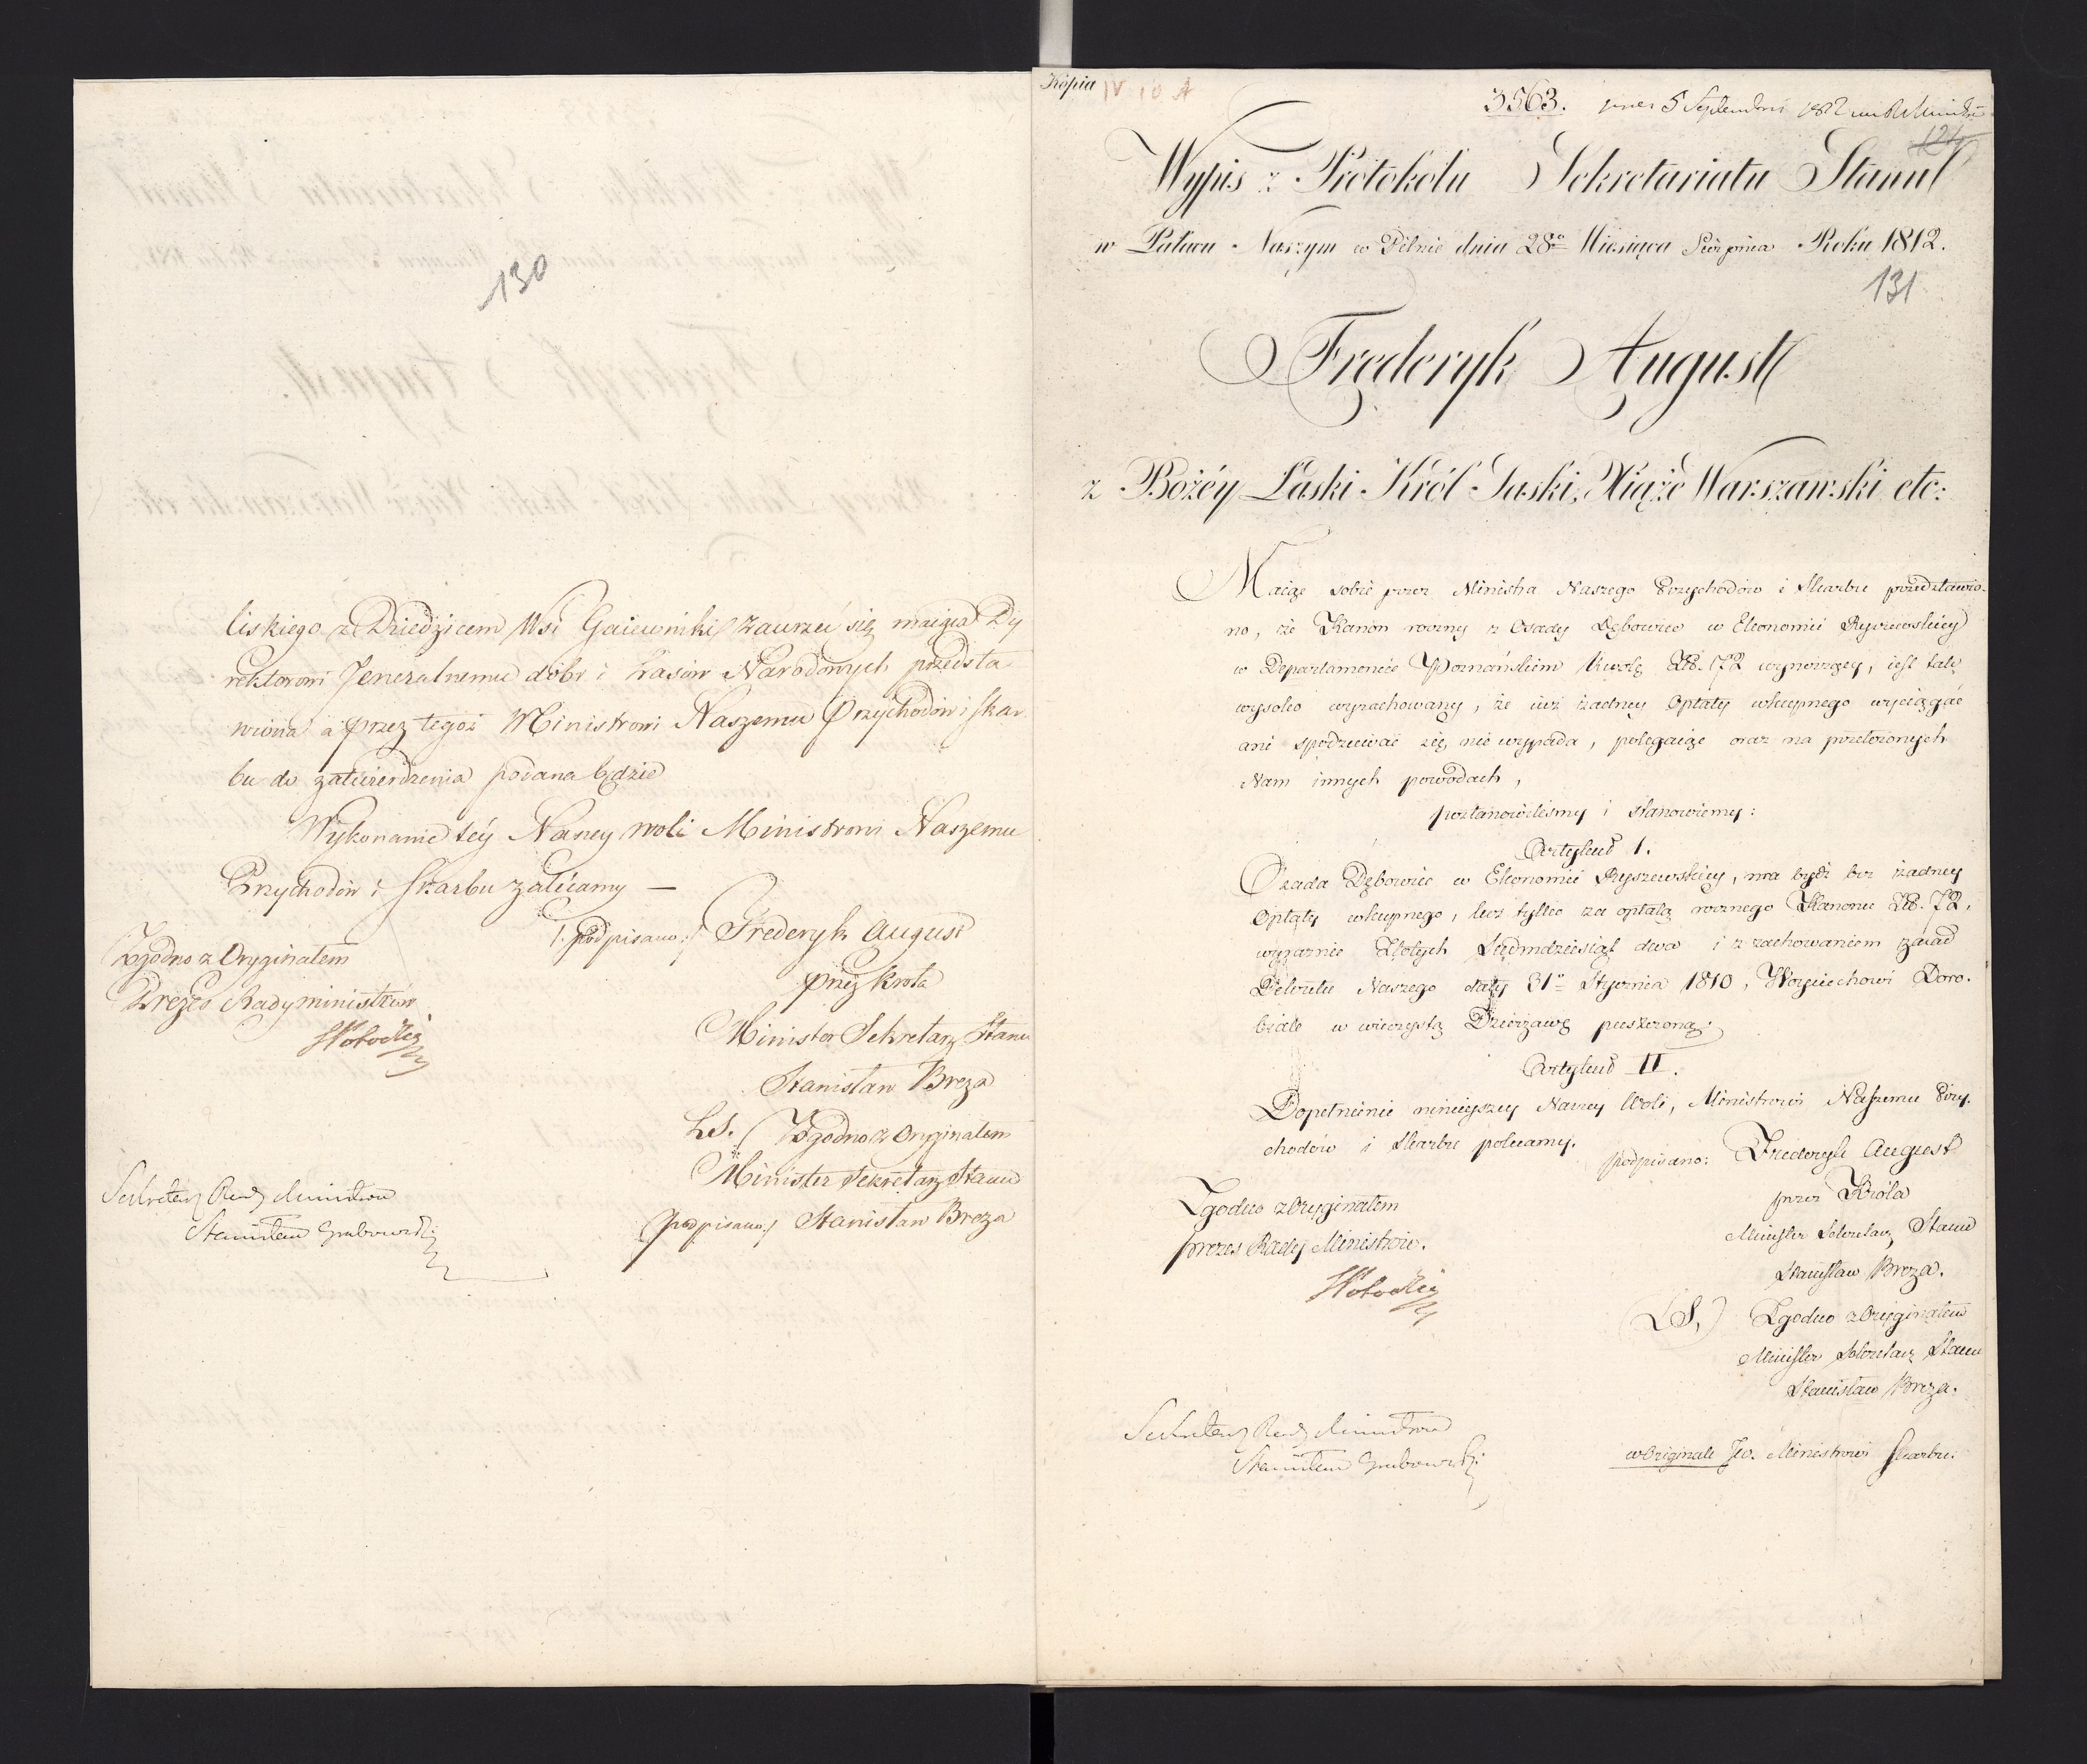 130
liskiego z Dziedzicem Wsi Gaiewniki zawrzeć się maiąca Dy
rektorowi Jeneralnemu dóbr i Lasów Narodowych przedsta
wiona a przez tegoż Ministrowi Naszemu Przychodów i skar
bu do zatwierdzenia podana będzie
Wykonanie téy Naszey woli Ministrowi Naszemu
Przychodów i Skarbu zalécamy —
/:podpisano:/ Frederyk August
Zgodno z Oryginałem
Prezes Rady ministrów
przez Króla
Minister Sekretarz Stanu
Stanisław Breza
LS. Zgodno z Oryginałem
Minister Sekretarz Stanu
(podpisano) Stanisław Breza
Sekretarz Rady Ministrów
Stanisław Grabowski
Kopia IV 10 A
3563. 5 Septembris 1812
124
Wypis z Protokółu Sekretariatu Stanu
w Pałacu Naszym w Pilnic dnia 28º Miesiąca Sierpnia Roku 1812.
131
Frederyk August
z Bożéy Łaski Król Saski, Xiąże Warszawski etc:
Maiąc sobie przez Ministra Naszego Przychodów i Skarbu przedstawio-
no, że Kanon roczny z Osady Dębowiec w Ekonomii Ryszewskiey
w Departamencie Poznańskim kwotę Zł. 72 wynoszący, iest tak
wysoko wyrachowany, że iuż żadney Opłaty wkupnego wyciągać
ani spodziewać się nie wypada, polegaiąc oraz na przełożonych
Nam innych powodach,
postanowiliśmy i stanowiemy:
Artykuł I.
Osada Dębowiec w Ekonomii Ryszewskiey, ma bydź bez żadney
Opłaty wkupnego, lecz tylko za opłatą rocznego Kanonu Zł. 72,
wyraźnie Złotych Siedmdziesiąt dwa i z zachowaniem zasad
Dekretu Naszego daty 31º Stycznia 1810, Woyciechowi Doro-
biale w wieczystą Dzierżawę puszczoną.
Artykuł II.
Dopełnienie ninieyszey Naszey Woli, Ministrowi Naszemu Przy-
chodów i Skarbu polecamy.
podpisano: Frederyk August
przez Króla
Zgodno z Oryginałem
prezes Rady Ministrów.
Minister Sekretarz Stanu
Stanisław Breza.
(LS.) Zgodno z Oryginałem
Minister Sekretarz Stanu
Stanisław Breza.
Sekretarz Rady Ministrów
Stanisław Grabowski
w Originale JW. Ministrowi Skarbu.